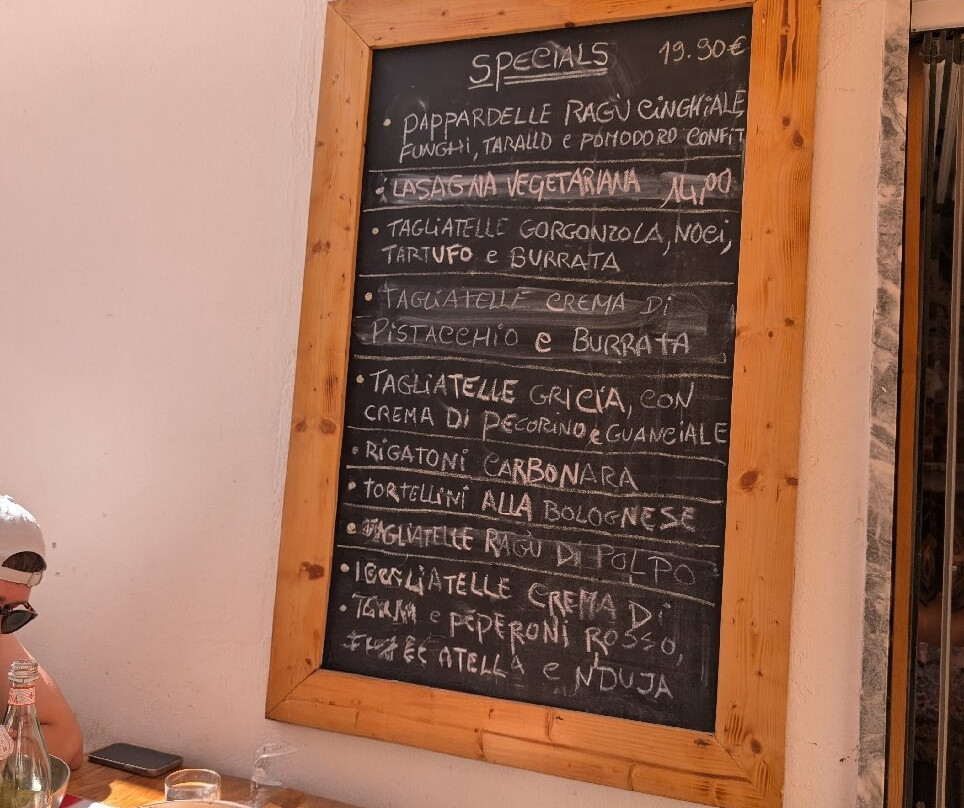 SPECIALS 19.90€
• PAPPARDELLE RAGÙ CINGHIALE
FUNGHI, TARALLO e POMODORO CONFIT
• LASAGNA VEGETARIANA 14,00
• TAGLIATELLE GORGONZOLA, NOCI,
TARTUFO e BURRATA
• TAGLIATELLE CREMA DI
PISTACCHIO e BURRATA
• TAGLIATELLE GRICIA, CON
CREMA DI PECORINO e GUANCIALE
• RIGATONI CARBONARA
• TORTELLINI ALLA BOLOGNESE
• TAGLIATELLE RAGÙ DI POLPO
• TAGLIATELLE CREMA DI
• e PEPERONI ROSSO,
e N'DUJA